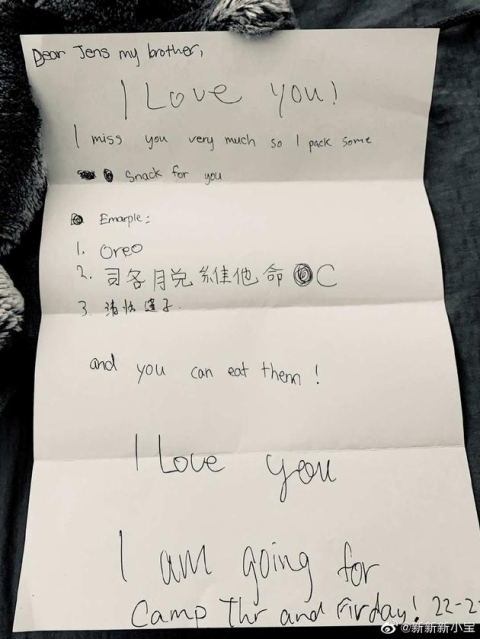 Dear Jens my brother,
I Love you!
I miss you very much so I pack some
snack for you
Emarple:
1. Oreo
2. 司各月兑維他命 C
3.
and you can eat them!
I Love you
I am going for
Camp Thr and Firday! 22-2
@新新新小宝